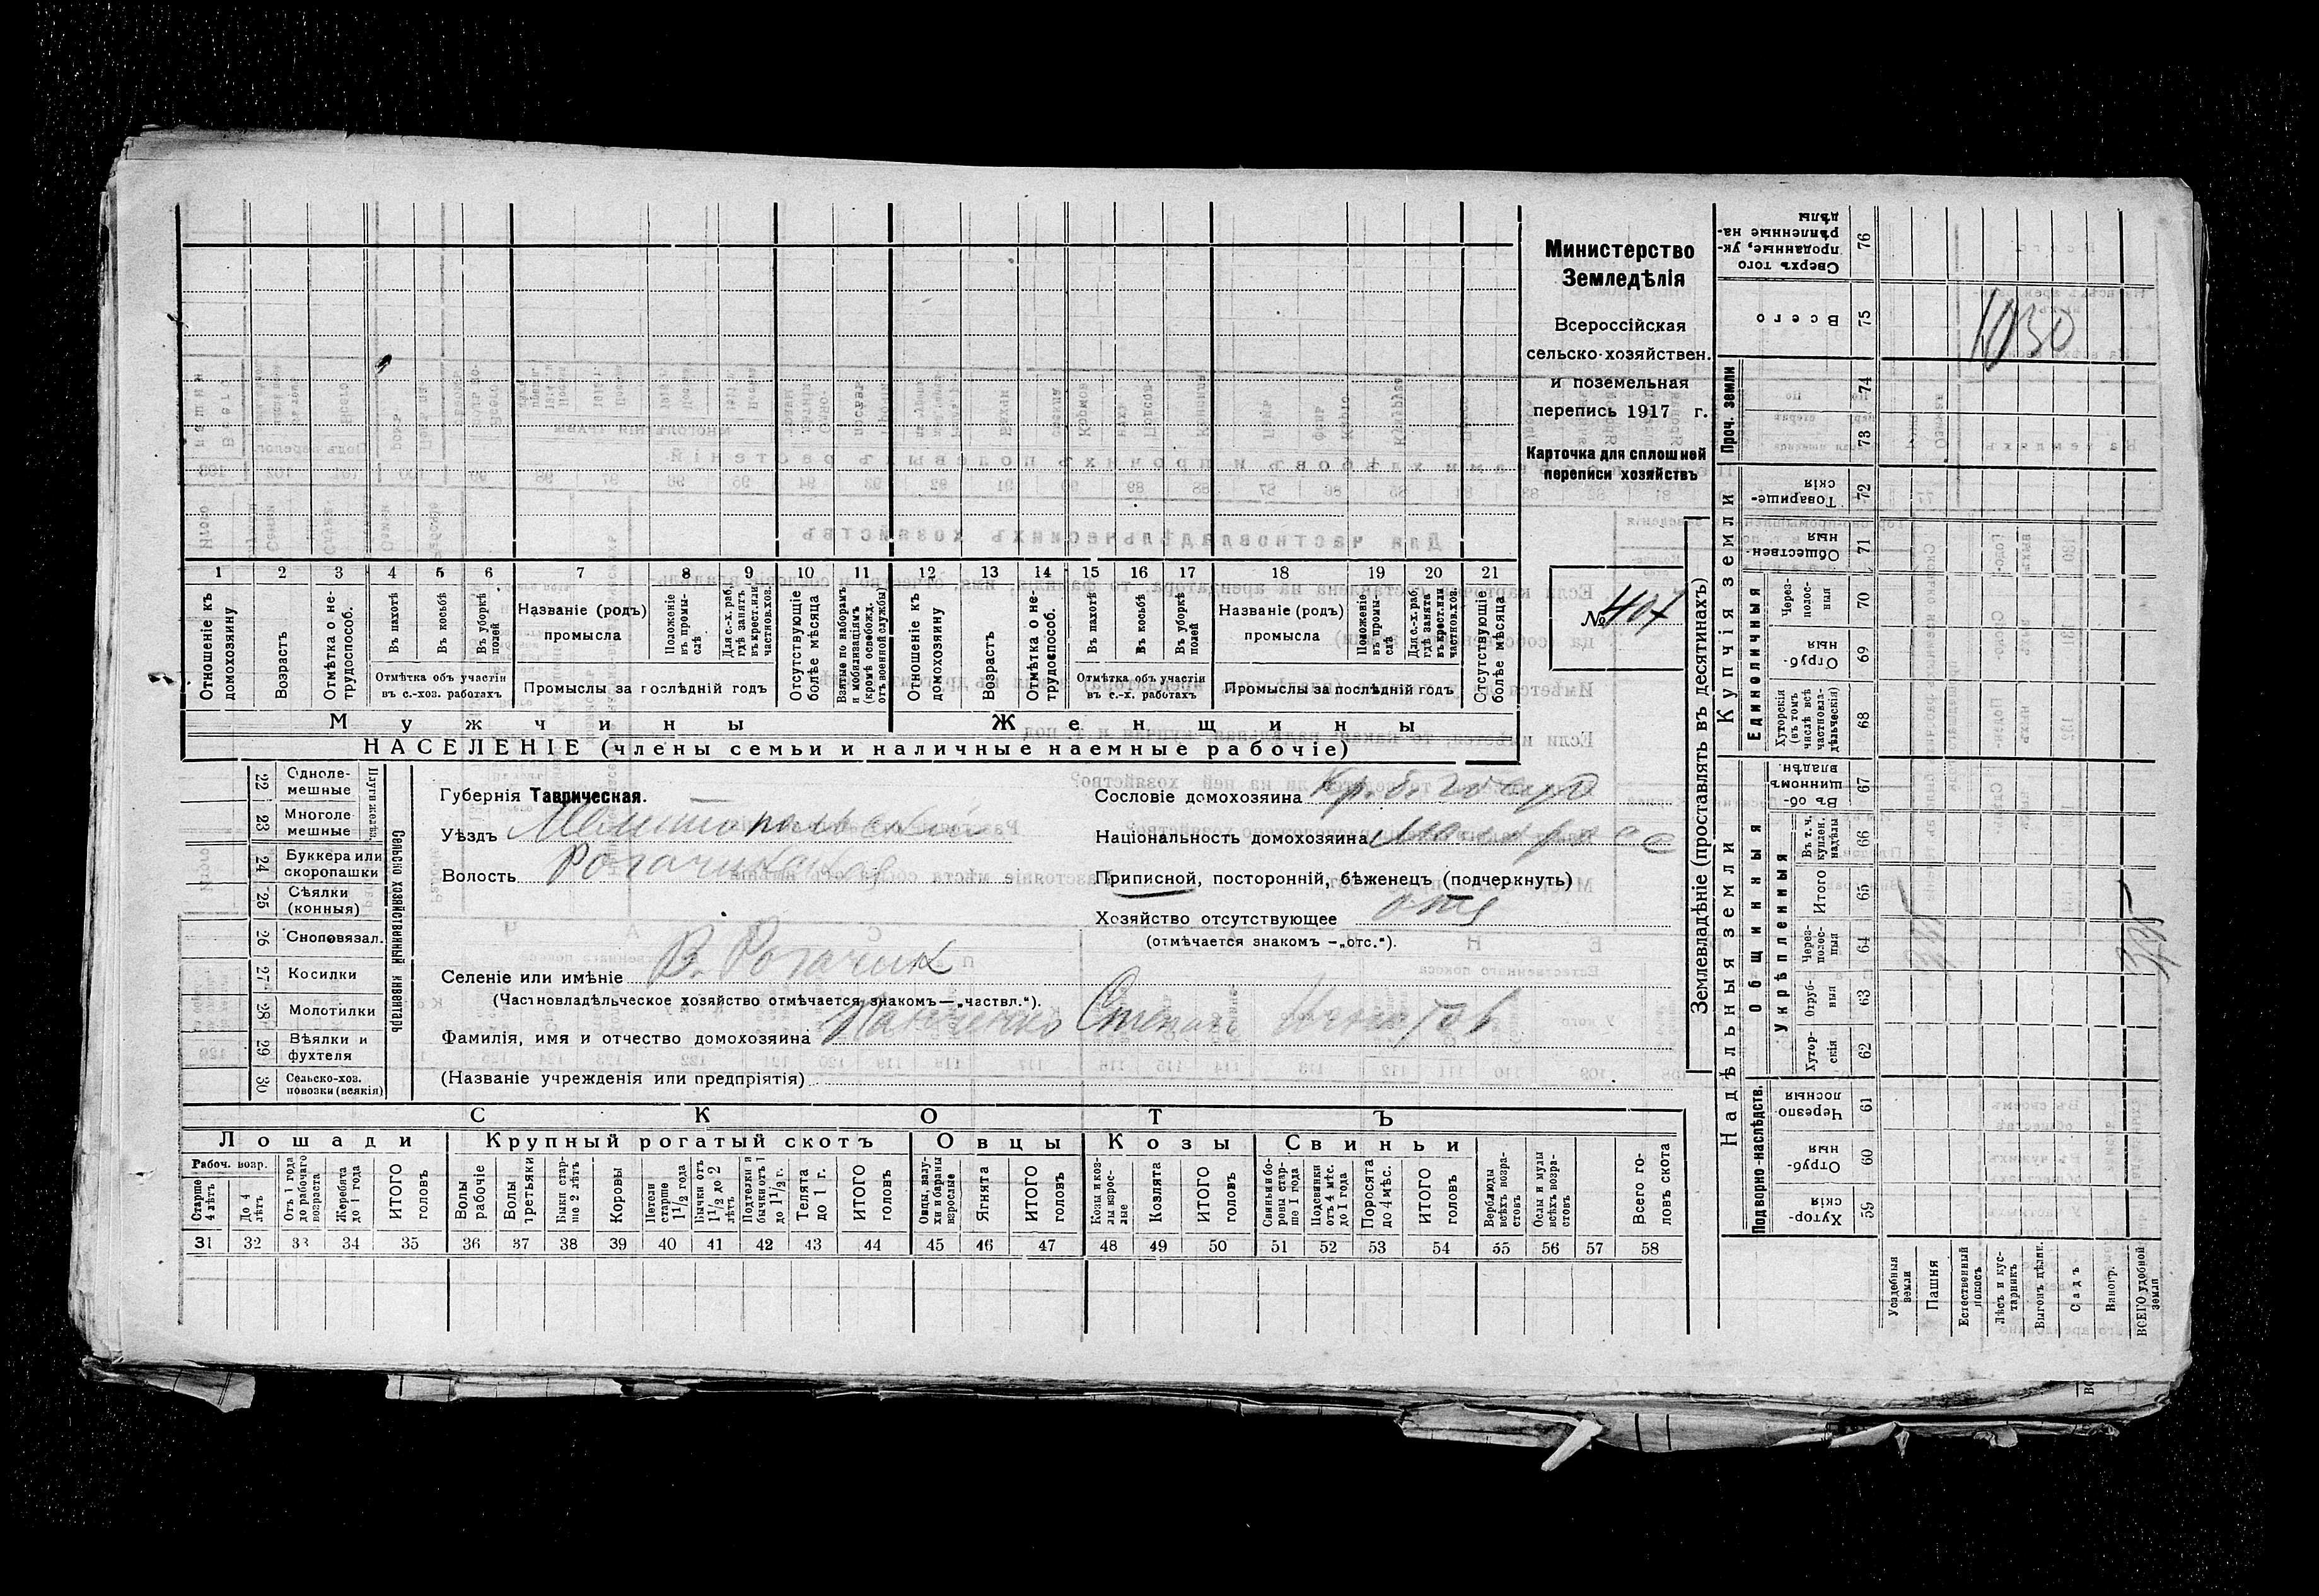 Министерство
Земледѣлія
Всероссійская
сельско-хозяйствен.
и поземельная
перепись 1917 г.
Карточка для сплошной
переписи хозяйствъ
№ 407
1 2 3 4 5 6 7 8 9 10 11 12 13 14 15 16 17 18 19 20 21
Отношеніе къ домохозяину
Возрастъ
Отмѣтка о нетрудоспособ.
Въ пахотѣ
Въ косьбѣ
Въ уборкѣ полей
Отмѣтка объ участіи
въ с.-хоз. работахъ
Названіе (родъ)
промысла
Положеніе въ промыслѣ
Для с.-х. раб. гдѣ занятъ въ крест. или частнов. хоз.
Промыслы за послѣдній годъ
Отсутствующіе болѣе мѣсяца
Взятые по наборамъ и мобилизаціямъ (кромѣ освобожд. отъ военной службы)
Отношеніе къ домохозяину
Возрастъ
Отмѣтка о нетрудоспособ.
Въ пахотѣ
Въ косьбѣ
Въ уборкѣ полей
Отмѣтка объ участіи
въ с.-х. работахъ
Названіе (родъ)
промысла
Положеніе въ промыслѣ
Для с.-х. раб. гдѣ занята въ крест. или частнов. хоз.
Промыслы за послѣдній годъ
Отсутствующіе болѣе мѣсяца
Мужчины Женщины
НАСЕЛЕНІЕ (члены семьи и наличные наемные рабочіе)
Сельско хозяйственный инвентарь
22 Одноле-
мешные
23 Многоле
мешные
24 Буккера или
скоропашки
25 Сѣялки
(конныя)
26 Сноповязал.
27 Косилки
28 Молотилки
29 Вѣялки и
фухтеля
30 Сельско-хоз.
повозки (всякія)
Губернія Таврическая.
Уѣздъ Мелитопольскій
Волость Рогачикская
Селеніе или имѣніе В. Рогачик
(Частновладѣльческое хозяйство отмѣчается знакомъ—„частвл.“).
Фамилія, имя и отчество домохозяина Панченко Степан Игнатов
(Названіе учрежденія или предпріятія)
Сословіе домохозяина Кр. б. госуд
Національность домохозяина
Приписной, посторонній, бѣженец (подчеркнуть)
Хозяйство отсутствующее отс
(отмѣчается знакомъ —„отс.“).
СКОТЪ
Лошади Крупный рогатый скотъ Овцы Козы Свиньи
Рабоч. возр.
Старше 4 лѣтъ
До 4 лѣтъ
Отъ 1 года до рабочаго возраста
Жеребята до 1 года
ИТОГО головъ
Волы рабочіе
Волы третьяки
Быки старше 2 лѣтъ
Коровы
Нетели старше 1½ года
Бычки отъ 1½ до 2 лѣтъ
Подтелки и бычки отъ 1 до 1½ г.
Телята до 1 г.
ИТОГО головъ
Овцы, валухи и бараны взрослые
Ягнята
ИТОГО головъ
Козы и козлы взрослые
Козлята
ИТОГО головъ
Свиньи боровы старше 1 года
Подсвинки отъ 4 мѣс. до 1 года
Поросята до 4 мѣс.
ИТОГО головъ
Верблюды всѣхъ возрастовъ
Ослы и мулы всѣхъ возрастовъ
Всего головъ скота
31 32 33 34 35 36 37 38 39 40 41 42 43 44 45 46 47 48 49 50 51 52 53 54 55 56 57 58
Землевладѣніе (проставлять въ десятинахъ)
Надѣльныя земли
Купчія земли
Проч. земли
Подворно-наслѣдств.
Общинныя
Укрѣпленныя
Единоличныя
Сверхъ того проданные, укрѣпленные надѣлы 76
Всего 75
74
73
Товарищескія 72
Общественныя 71
Черезполосныя 70
Отрубныя 69
Хуторскія (въ томъ числѣ всѣ частновладѣльческія) 68
Въ общинномъ владѣн. 67
Въ т. ч. куплен. надѣлы 66
Итого 65
Черезполосныя 64
Отрубныя 63
Хуторскія 62
Черезполосныя 61
Отрубныя 60
Хуторскія 59
Усадебныя земли
Пашня
Естественный покосъ
Лѣсъ и кустарникъ
Выгонъ дѣлян.
Садъ
Виногр.
ВСЕГО удобной земли
1030